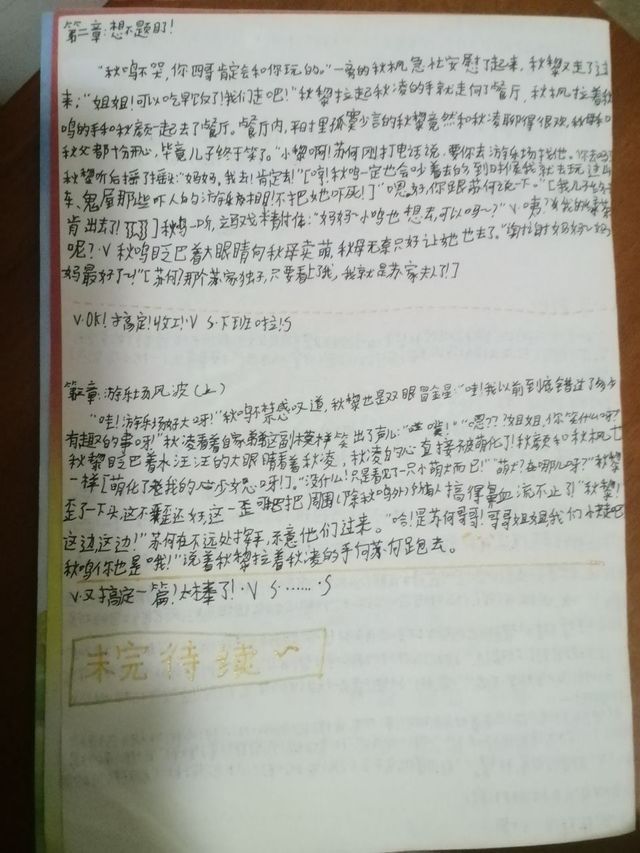 第二章:想不题目了!
"秋鸣不哭,你四哥肯定会和你玩的。"一旁的秋枫急忙安慰了起来,秋黎又走了过
来:"姐姐!可以吃早饭了!我们走吧!"秋黎拉起秋凌的手就走向了餐厅,秋枫拉着秋
鸣的手和秋颜一起去了餐厅。餐厅内,平日里孤寡少言的秋黎竟然和秋凌聊得很欢,秋母和
秋父都十分开心,毕竟儿子终于笑了。"小黎啊!苏何刚打电话说,要你去游乐场找他。你去吗?
秋黎听后摇了摇头:"妈妈,我去!肯定去!"[哼!秋鸣一定也会吵着去的到时候我就去玩过山
车、鬼屋那些吓人的游乐 不把她吓死!]"嗯,好,你跟苏何说一下。"[我儿子
肯出去了!]秋鸣一听,立马 :"妈妈~小鸣也想去,可以吗~?"V·咦?
呢?·V 秋鸣眨巴着大眼睛向秋母卖萌,秋母无奈只好让她也去了。" 妈妈
妈最好了~!"[苏何?那个苏家独子,只要看上了我,我就是苏家夫人了!]
V·OK!搞定!收工!·V S·下班啦!·S
第三章:游乐场风波(上)
"哇!游乐场好大呀!"秋鸣不禁感叹道,秋黎也是双眼冒金星:"哇!我以前到底错过了多少
有趣的事呀!"秋凌看着自家弟弟这副模样笑出了声儿:"噗!""嗯??姐姐,你笑什么呀?
秋黎眨巴着水汪汪的大眼睛看着秋凌,秋凌的心直接被萌化了!秋颜和秋枫也
一样[萌化了老我的少女心呀!]。"没什么!只是看见了一只小萌犬而已!""萌犬?在哪儿呀?"秋黎
歪了一下头,这不歪还好,这一歪 把周围(除秋鸣外)的人搞得鼻血流不止了!"秋黎!
这边,这边!"苏何在不远处挥手,示意他们过来。"哈!是苏何哥哥!哥哥姐姐我们 吧
秋鸣你也是哦!"说着秋黎拉着秋凌的手向苏何跑去。
V·又搞定一篇!太棒了!·V S·……·S
未完待续~